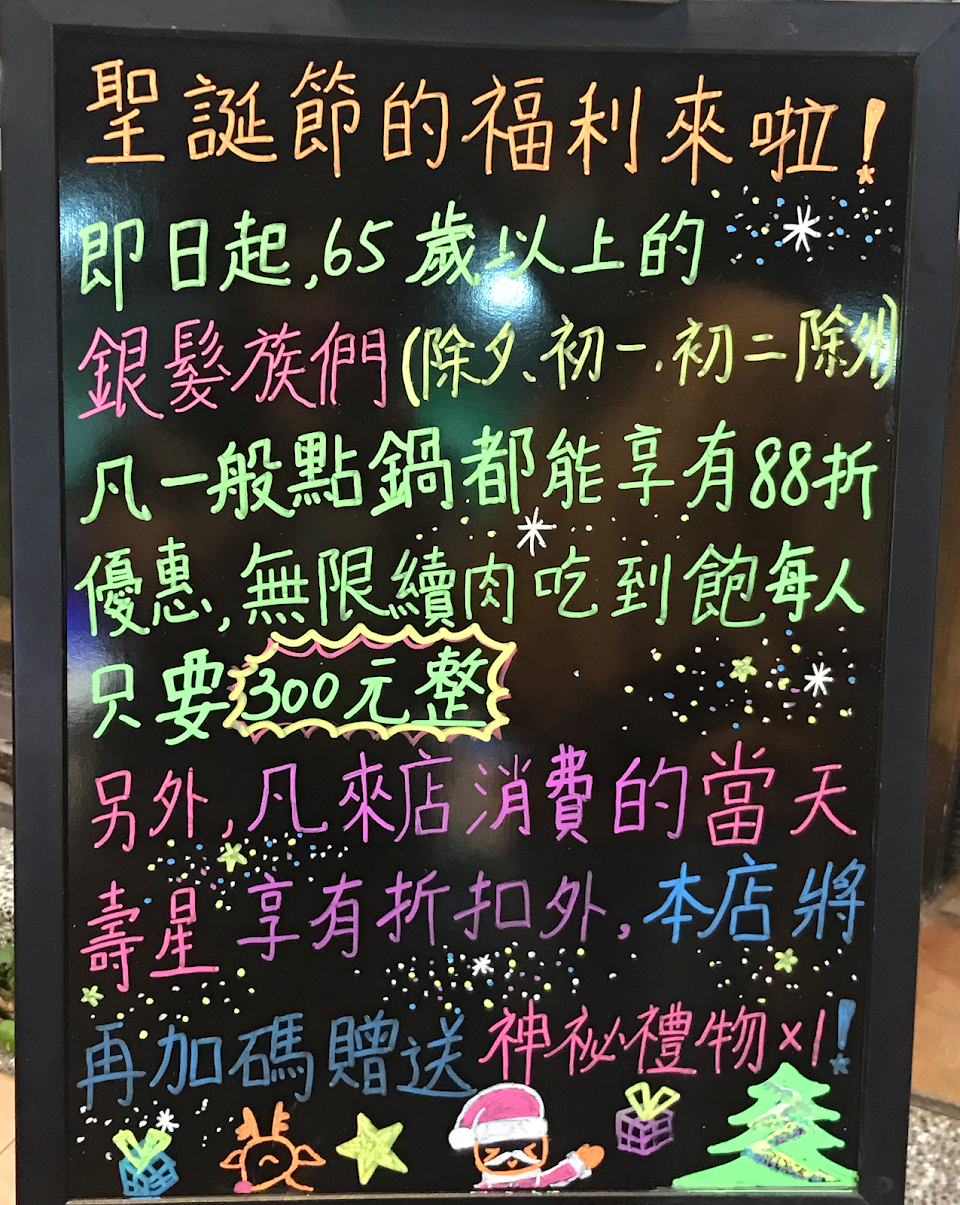 聖誕節的福利來啦!
即日起,65歲以上的
銀髮族們(除夕、初一.初二除外)
凡一般點鍋都能享有88折
優惠,無限續肉吃到飽每人
只要300元整
另外,凡來店消費的當天
壽星享有折扣外,本店將
再加碼贈送神祕禮物×1!